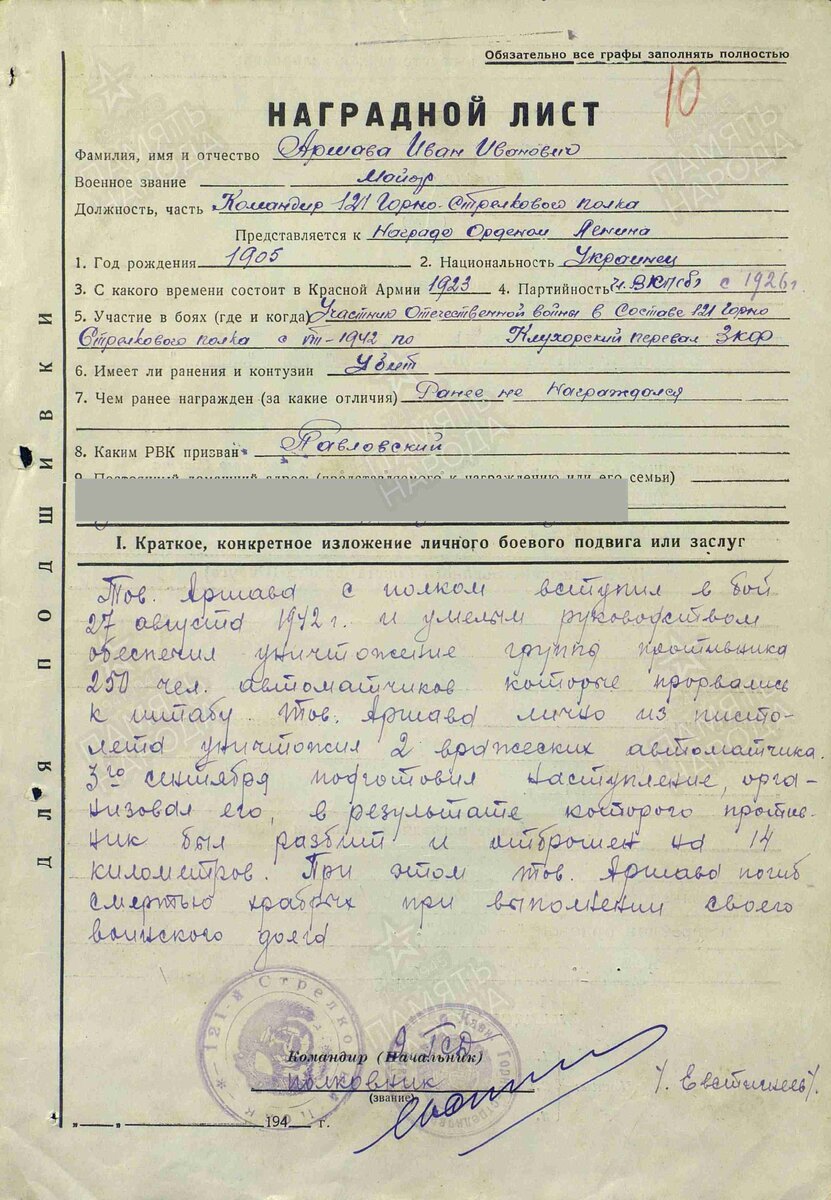 Обязательно все графы заполнять полностью
10
НАГРАДНОЙ ЛИСТ
Фамилия, имя и отчество Аршава Иван Иванович
Военное звание Майор
Должность, часть Командир 121 Горно-Стрелкового полка
Представляется к Награде Орденом Ленина
1. Год рождения 1905 2. Национальность Украинец
3. С какого времени состоит в Красной Армии 1923 4. Партийность ч. ВКП(б) с 1926 г.
5. Участие в боях (где и когда) Участник Отечественной войны в Составе 121 Горно
Стрелкового полка с 1942 по Клухорский перевал ЗКФ
6. Имеет ли ранения и контузии Убит
7. Чем ранее награжден (за какие отличия) Ранее не Награждался
8. Каким РВК призван Павловский
9. Постоянный домашний адрес (представляемого к награждению или его семьи)
I. Краткое, конкретное изложение личного боевого подвига или заслуг
Тов. Аршава с полком вступил в бой
27 августа 1942 г. и умелым руководством
обеспечил уничтожение группа противника
250 чел. автоматчиков которые прорвались
к штабу. Тов. Аршава лично из писто-
лета уничтожил 2 вражеских автоматчика.
3го сентября подготовил наступление, орга-
низовал его, в результате которого против-
ник был разбит и отброшен на 14
километров. При этом тов. Аршава погиб
смертью храбрых при выполнении своего
воинского долга
9 ГСД
Командир (Начальник)
полковник
(звание)
/. Евстигнеев/.
"___" 194 г.
ДЛЯ ПОДШИВКИ
121-й Стрелковый
ПАМЯТЬ НАРОДА